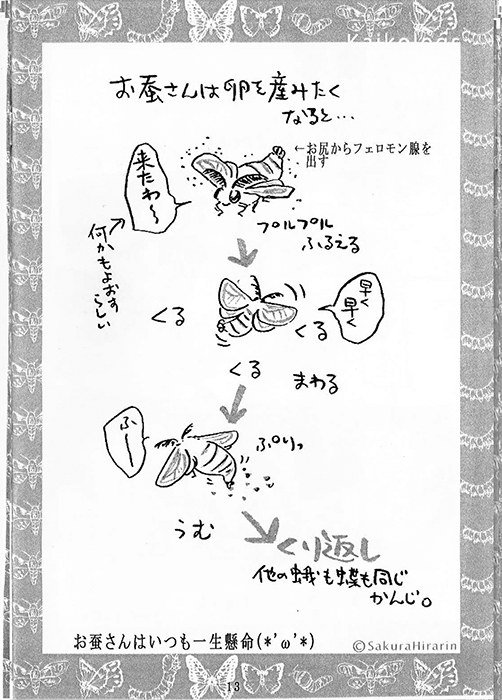 お蚕さんは卵を産みたく
なると…
←お尻からフェロモン腺を
出す
来たわ〜
何かもよおす
らしい
プルプル
ふるえる
早く
早く
くる
くる
くる
まわる
ふー
ぷりっ
うむ
くり返し
他の蛾も蝶も同じ
かんじ。
お蚕さんはいつも一生懸命(*'ω'*)
©SakuraHirarin
13